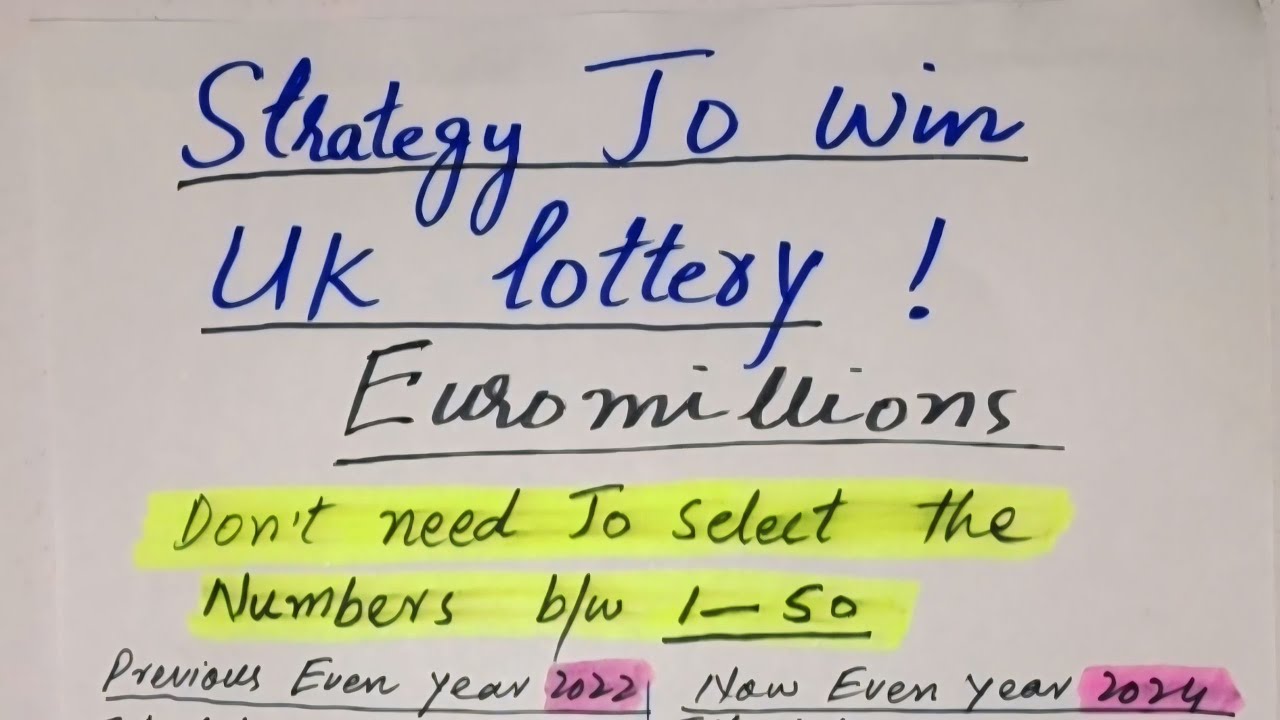 Strategy To Win
UK lottery !
Euromillions
Don't need To select the
Numbers b/w 1-50
Previous Even year 2022
Now Even year 2024